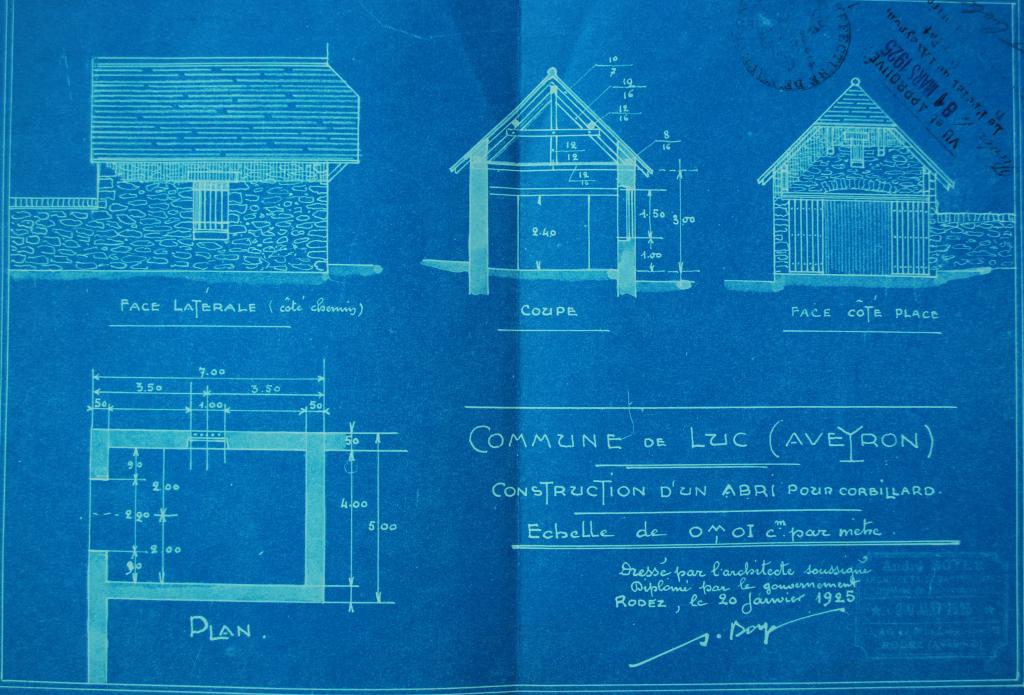 VU et APPROUVÉ
31 MARS 1925
10
7
10
16
12
16
8
16
12
12
12
16
1.50
3.00
2.40
1.00
FACE LATÉRALE (côté chemin)
COUPE
FACE CÔTÉ PLACE
7.00
3.50 3.50
50 1.00 50
50
90
2.00
2.20
2.00
90
4.00
5.00
PLAN.
COMMUNE DE LUC (AVEYRON)
CONSTRUCTION D'UN ABRI POUR CORBILLARD.
Echelle de 0m,01 cm. par mètre.
Dressé par l'architecte soussigné
Diplômé par le gouvernement
RODEZ, le 20 Janvier 1925
André BOYER
RODEZ